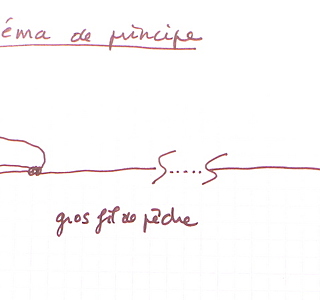 éma de principe
gros fil de pêche